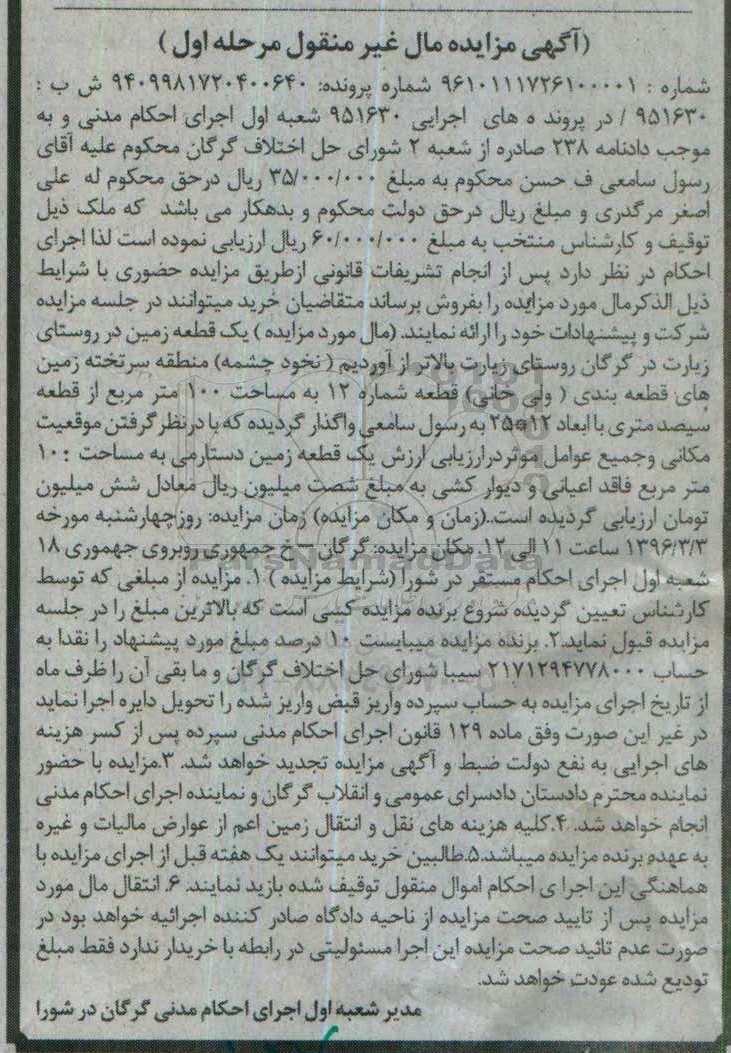 (آگهی مزایده مال غیر منقول مرحله اول)
شماره : ۹۶۱۰۱۱۱۷۲۶۱۰۰۰۰۱ شماره پرونده: ۹۴۰۹۹۸۱۷۲۰۴۰۰۶۴۰ ش ب :
۹۵۱۶۳۰ / در پروند ه های اجرایی ۹۵۱۶۳۰ شعبه اول اجرای احکام مدنی و به
موجب دادنامه ۲۳۸ صادره از شعبه ۲ شورای حل اختلاف گرگان محکوم علیه آقای
رسول سامعی ف حسن محکوم به مبلغ ۳۵/۰۰۰/۰۰۰ ریال درحق محکوم له علی
اصغر مرگدری و مبلغ ریال درحق دولت محکوم و بدهکار می باشد که ملک ذیل
توقیف و کارشناس منتخب به مبلغ ۶۰/۰۰۰/۰۰۰ ریال ارزیابی نموده است لذا اجرای
احکام در نظر دارد پس از انجام تشریفات قانونی ازطریق مزایده حضوری با شرایط
ذیل الذکرمال مورد مزایده را بفروش برساند متقاضیان خرید میتوانند در جلسه مزایده
شرکت و پیشنهادات خود را ارائه نمایند. (مال مورد مزایده ) یک قطعه زمین در روستای
زیارت در گرگان روستای زیارت بالاتر از آوردیم ( نخود چشمه) منطقه سرتخته زمین
های قطعه بندی ( ولی خانی) قطعه شماره ۱۲ به مساحت ۱۰۰ متر مربع از قطعه
سیصد متری با ابعاد ۱۲*۲۵ به رسول سامعی واگذار گردیده که با درنظر گرفتن موقعیت
مکانی وجمیع عوامل موثر درارزیابی ارزش یک قطعه زمین دستارمی به مساحت ۱۰۰
متر مربع فاقد اعیانی و دیوار کشی به مبلغ شصت میلیون ریال معادل شش میلیون
تومان ارزیابی گردیده است..(زمان و مکان مزایده) زمان مزایده: روزچهارشنبه مورخه
۱۳۹۶/۳/۳ ساعت ۱۱ الی ۱۲. مکان مزایده: گرگان – خ جمهوری روبروی جهموری ۱۸
شعبه اول اجرای احکام مستقر در شورا (شرایط مزایده ) ۱. مزایده از مبلغی که توسط
کارشناس تعیین گردیده شروع برنده مزایده کیسی است که بالاترین مبلغ را در جلسه
مزابده قبول نماید.۲. برنده مزایده میبایست ۱۰ درصد مبلغ مورد پیشنهاد را نقدا به
حساب ۲۱۷۱۲۹۴۷۷۸۰۰۰ سیبا شورای حل اختلاف گرگان و ما بقی آن را ظرف ماه
از تاریخ اجرای مزایده به حساب سپرده واریز قبض واریز شده را تحویل دایره اجرا نماید
در غیر این صورت وفق ماده ۱۲۹ قانون اجرای احکام مدنی سپرده پس از کسر هزینه
های اجرایی به نفع دولت ضبط و آگهی مزایده تجدید خواهد شد. ۳.مزایده با حضور
نماینده محترم دادستان دادسرای عمومی و انقلاب گرگان و نماینده اجرای احکام مدنی
انجام خواهد شد. ۴.کلیه هزینه های نقل و انتقال زمین اعم از عوارض مالیات و غیره
به عهده برنده مزایده میباشد.۵.طالبین خرید میتوانند یک هفته قبل از اجرای مزایده با
هماهنگی این اجرا ی احکام اموال منقول توقیف شده بازید نمایند. ۶. انتقال مال مورد
مزایده پس از تایید صحت مزایده از ناحیه دادگاه صادر کننده اجرائیه خواهد بود در
صورت عدم تائید صحت مزایده این اجرا مسئولیتی در رابطه با خریدار ندارد فقط مبلغ
تودیع شده عودت خواهد شد.
مدیر شعبه اول اجرای احکام مدنی گرگان در شورا
ParsNamadData